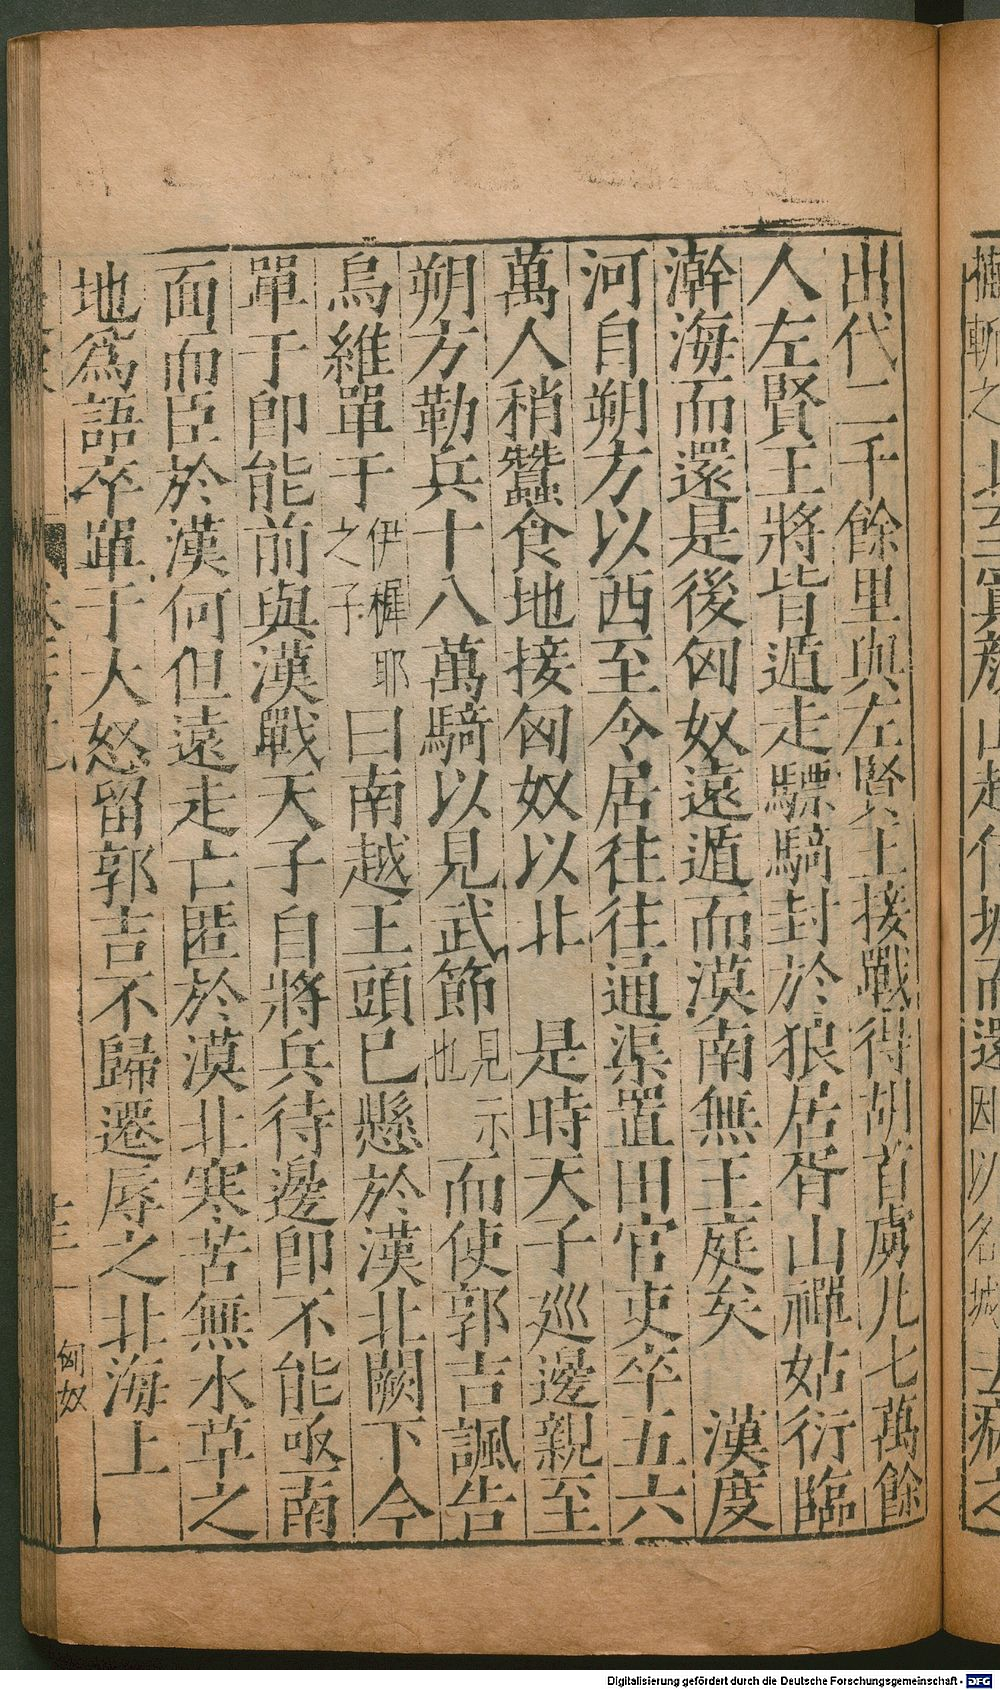 出代二千餘里與左賢王接戰得胡首虜凡七萬餘
人左賢王將皆遁走驃騎封於狼居胥山禪姑衍臨
澣海而還是後匈奴遠遁而漠南無王庭矣 漢度
河自朔方以西至令居往往通渠置田官吏卒五六
萬人稍蠶食地接匈奴以北 是時天子巡邊親至
朔方勒兵十八萬騎以見武節見示也而使郭吉諷告
烏維單于伊樨耶之子曰南越王頭已懸於漢北闕下今
單于即能前與漢戰天子自將兵待邊即不能亟南
面而臣於漢何但遠走亡匿於漠北寒苦無水草之
地爲語卒單于大怒留郭吉不歸遷辱之北海上
匈奴
斬之 山 因以名城
Digitalisierung gefördert durch die Deutsche Forschungsgemeinschaft - DFG